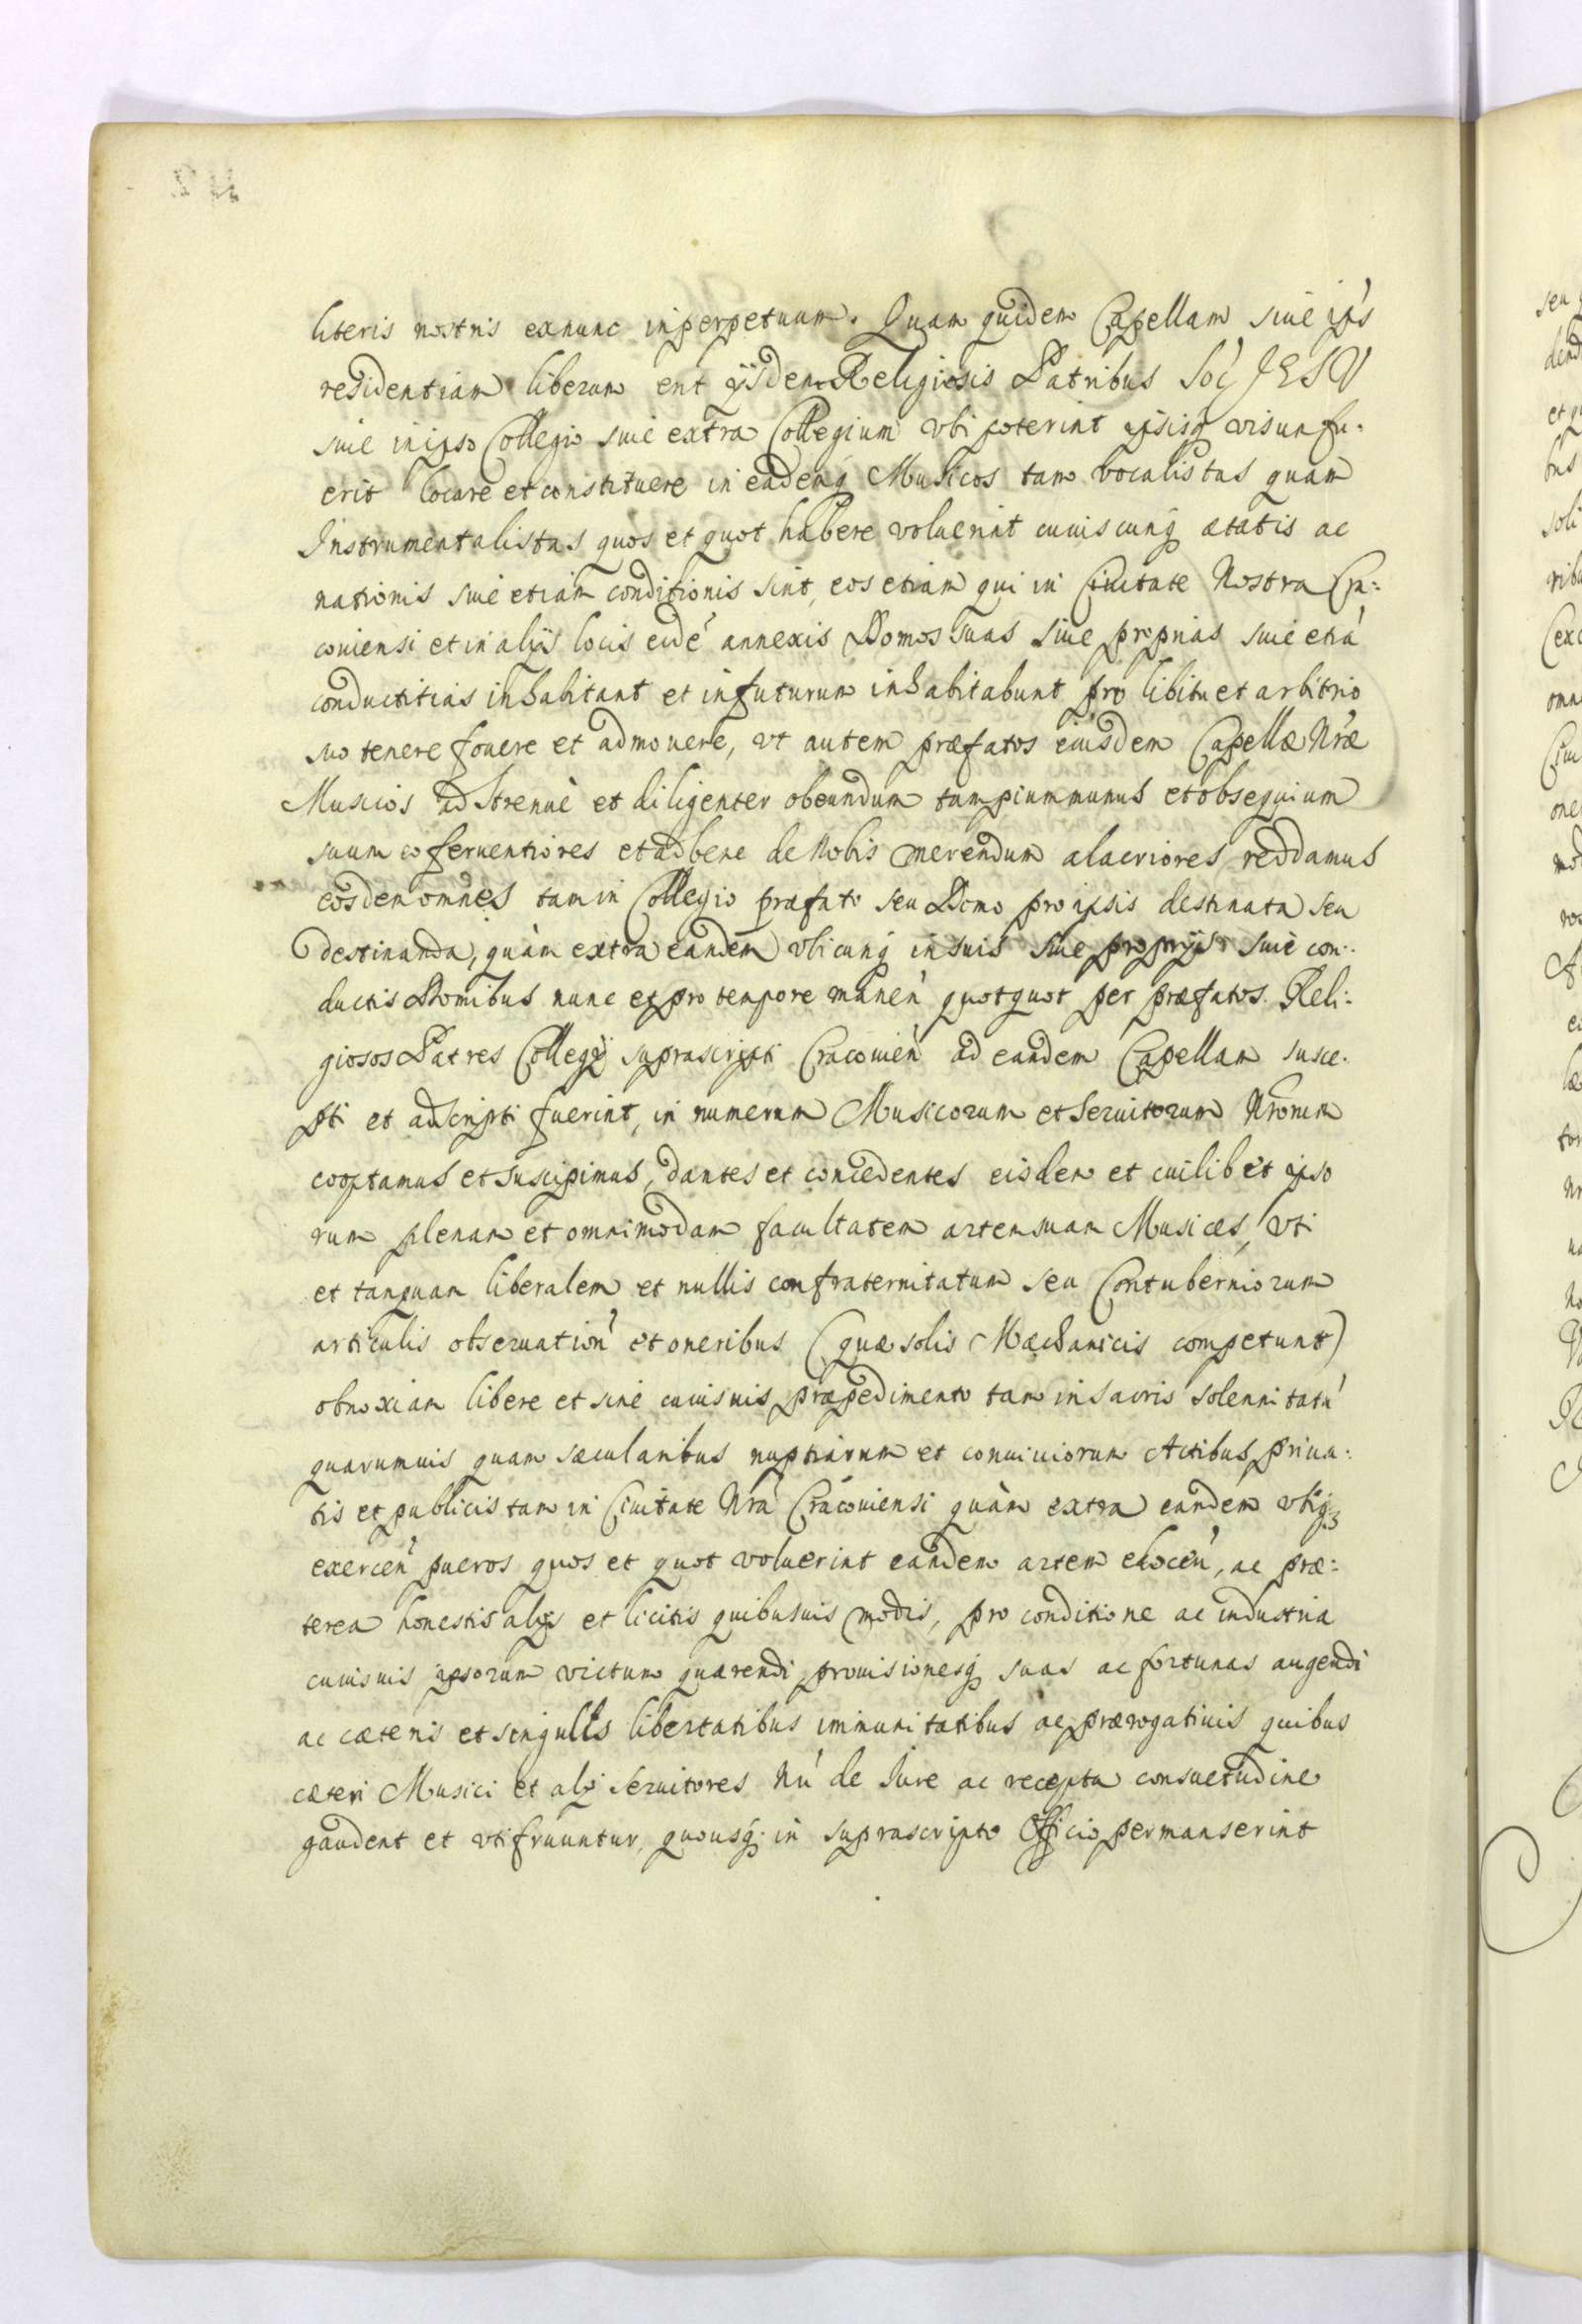 literis nostris exnunc inperpetuum. Quam quidem Capellam siue ips
residentiam liberum erit ijsdem Religiosis Patribus Soc JESV
siue in ipso Collegio siue extra Collegium vbi poterint ipsisq visum fu:
erit locare et constituere in eademq Musicos tam vocalistas quam
Instrumentalistas quos et quot habere voluerint cuiuscunq ætatis ac
nationis siue etiam conditionis sint, eos etiam qui in Ciuitate Nostra Cra:
couiensi et in alijs locis eidé annexis Domos suas siue proprias siue etiá
conductitias inhabitant et infuturum inhabitabunt pro libitu et arbitrio
suo tenere fouere et admouere, vt autem præfatos eiusdem Capellæ Nræ
Musicos ad strenuè et diligenter obeundum tam pium munus et obsequium
suum eo feruentiores et ad bene de Nobis merendum alacriores reddamus
eosdem omnes tam in Collegio præfato seu Domo pro ipsis destinata seu
destinanda, quàm extra eandem vbicunq in suis siue proprijs siue con:
ductis Domibus nunc et pro tempore manen quotquot per præfatos Reli:
giosos Patres Collegij suprascripti Cracouien ad eandem Capellam susce:
pti et adscripti fuerint, in numerum Musicorum et Seruitorum Nrorum
cooptamus et suscipimus, dantes et concedentes eisdem et cuilibet ipso
rum plenam et omnimodam facultatem artem suam Musices, vti
et tanquam liberalem et nullis confraternitatum seu Contuberniorum
articulis obseruation et oneribus (quæ solis Mæchanicis competunt)
obnoxiam libere et siné cuiusuis præpedimento tam in sacris solennitatú
quarumuis quam sæcularibus nuptiarum et conuiuiorum Actibus priua:
tis et publicis tam in Ciuitate Nra Cracouiensi quàm extra eandem vbiq
exercen pueros quos et quot voluerint eandem artem edocen, ac præ:
terea honestis alijs et licitis quibusuis modis, pro conditione ac industria
cuiusuis ipsorum victum quærendi prouisionesq suas ac fortunas augendi
ac cæteris et singulis libertatibus immunitatibus ac prærogatiuis quibus
cæteri Musici et alij Seruitores Nri de Iure ac recepta consuetudine
gaudent et vtifruuntur, quousq in suprascripto Officio permanserint